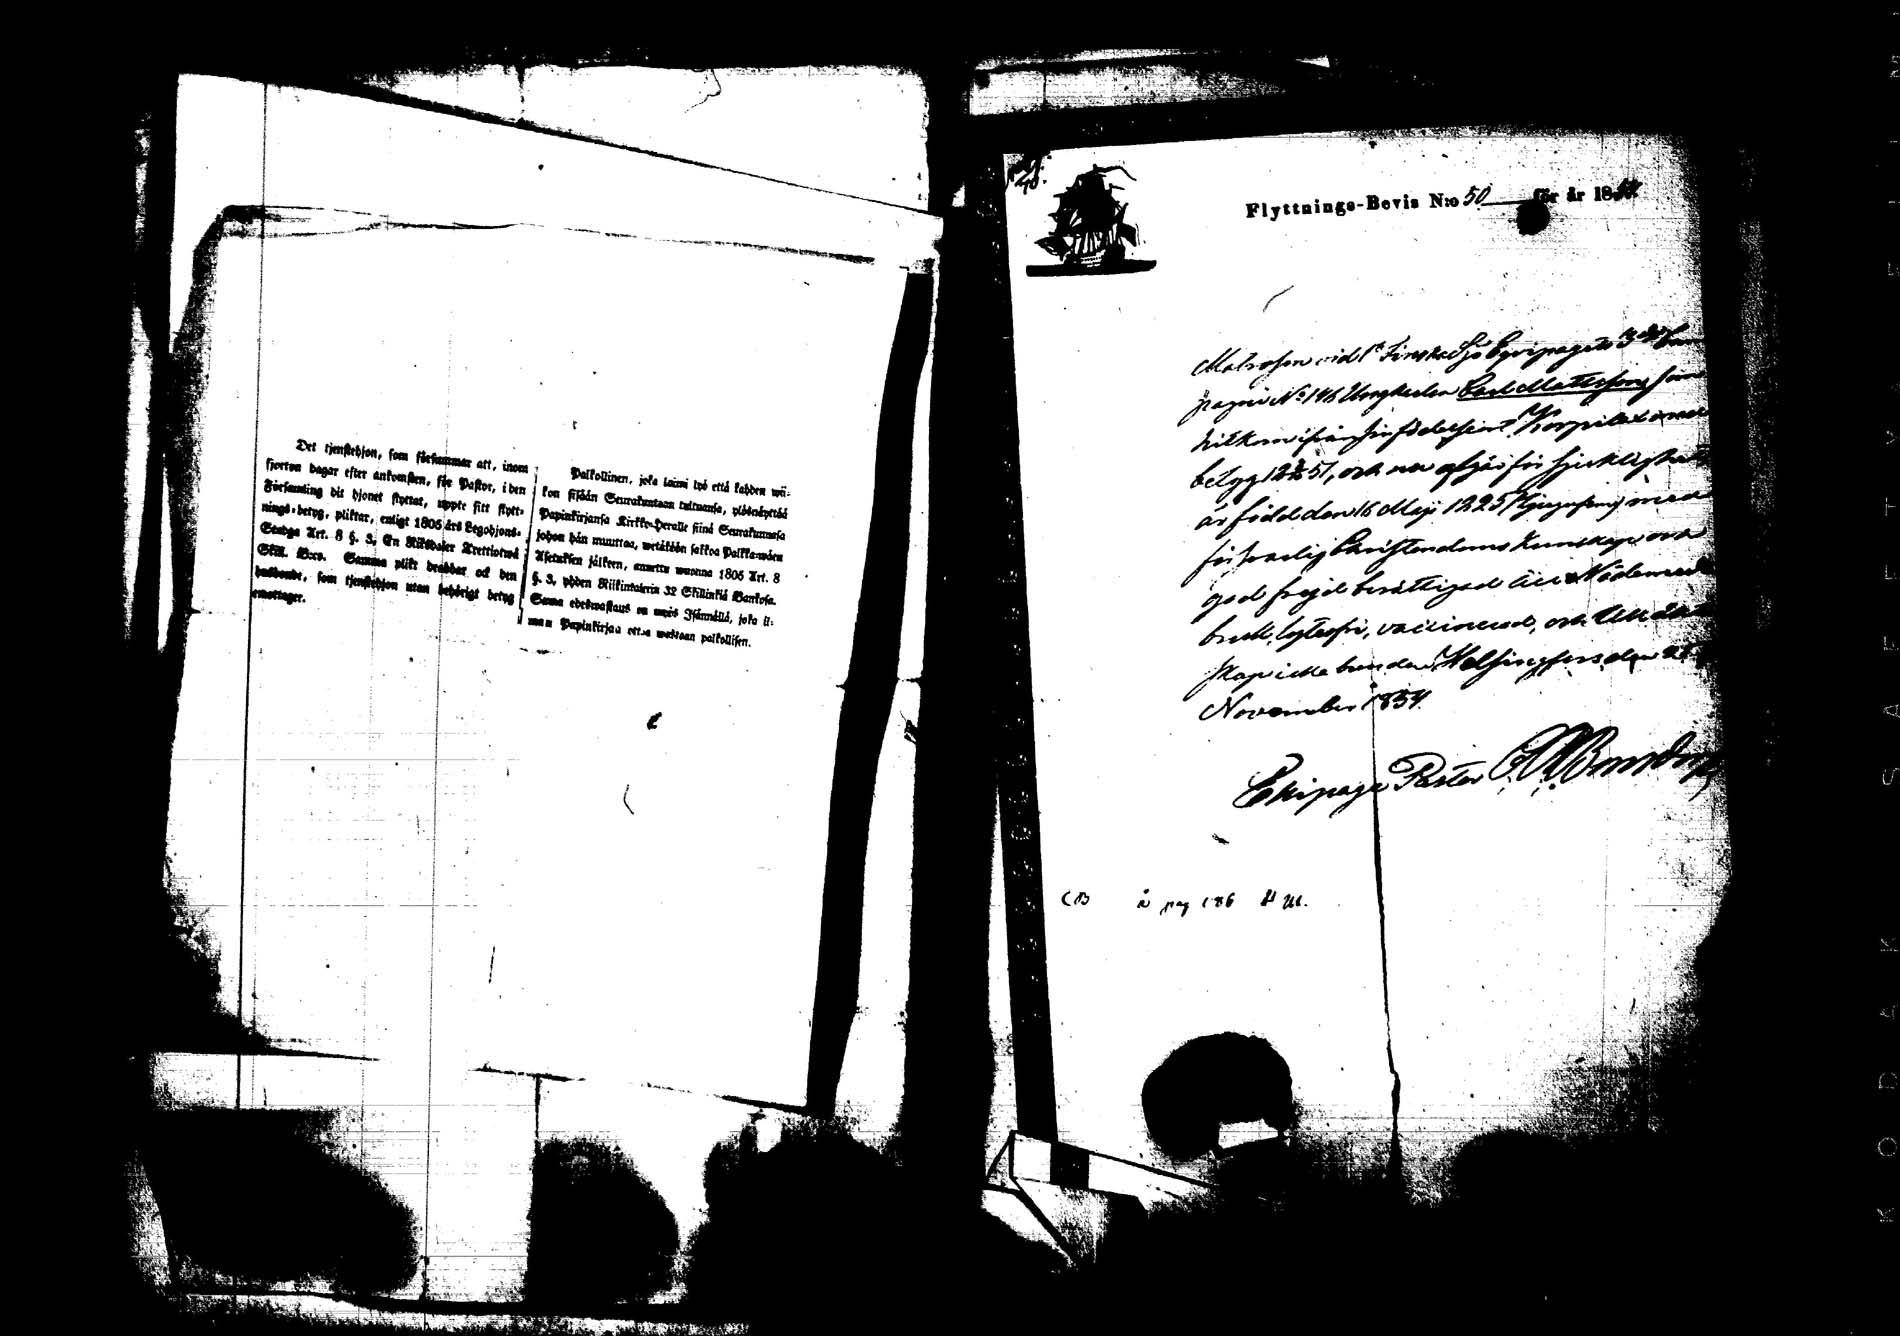 Det tjenstehjon, som försummar att, inom
fjorton dagar efter ankomsten, för Pastor, i den
Församling dit hjonet flyttat, uppte sitt flytt-
nings-betyg, pliktar, enligt 1805 års Legohjons-
Stadga Art. 8 §. 3, En Riksdaler Trettiotwå
Skill. B:co. Samma plikt drabbar ock den
husbonde, som tjenstehjon utan behörigt betyg
emottager.
Palkollinen, joka laimi lyö että kahden wii-
kon sisään Seurakuntaan tultuansa, ylösnäyttää
Papinkirjansa Kirkko-Herralle siinä Seurakunnasa
johon hän muuttaa, wetäköön sakkoa Palkka-wäen
Asetuksen jälkeen, annettu wuonna 1805 Art. 8
§. 3, yhden Riikintalerin 32 Skillinkiä Bankosa.
Sama edeswastaus on myös Isännällä, joka il-
man Papinkirjaa ottaa wastaan palkollisen.
Flyttnings-Bevis N:o 50 för år 1854
Matrosen vid 1:a Finska Sjö Equipagets 3:dje Com
pagnie No 146 Ungkarlen Carl Mattsson, som
hitkom ifrån sin födelseort Korpilax med
betyg 12 51, och nu afgår för sjuklighet
är född den 16 Maji 1825 med
försvarlig Christendoms Kunskap och
god frejd berättigad till Nådemedlens
bruk, lytesfri, vaccinerad, och till ägten
skap icke bunden, Helsingfors den
November 1854.
Ekipage Pastor
å pag 186